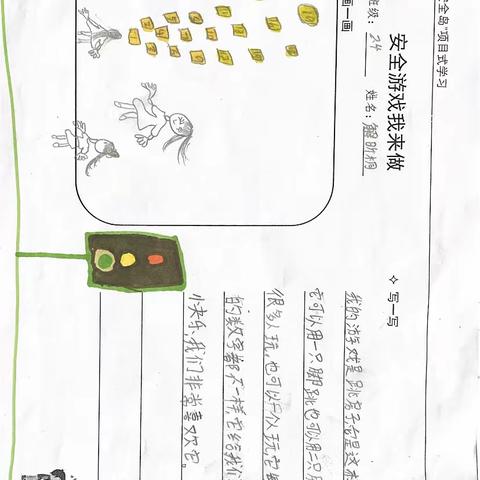 全岛”项目式学习
安全游戏我来做
班级：24 姓名：解昕桐
画一画
✧ 写一写
我的游戏是跳房子它是这
它可以用一只脚跳也可以用只
很多人玩,也可以个人玩,它
的数字都不一样,它给我们
小快乐,我们非常喜欢它。